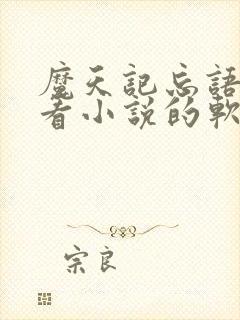 魔天記忘語
看小説的軟
宗良